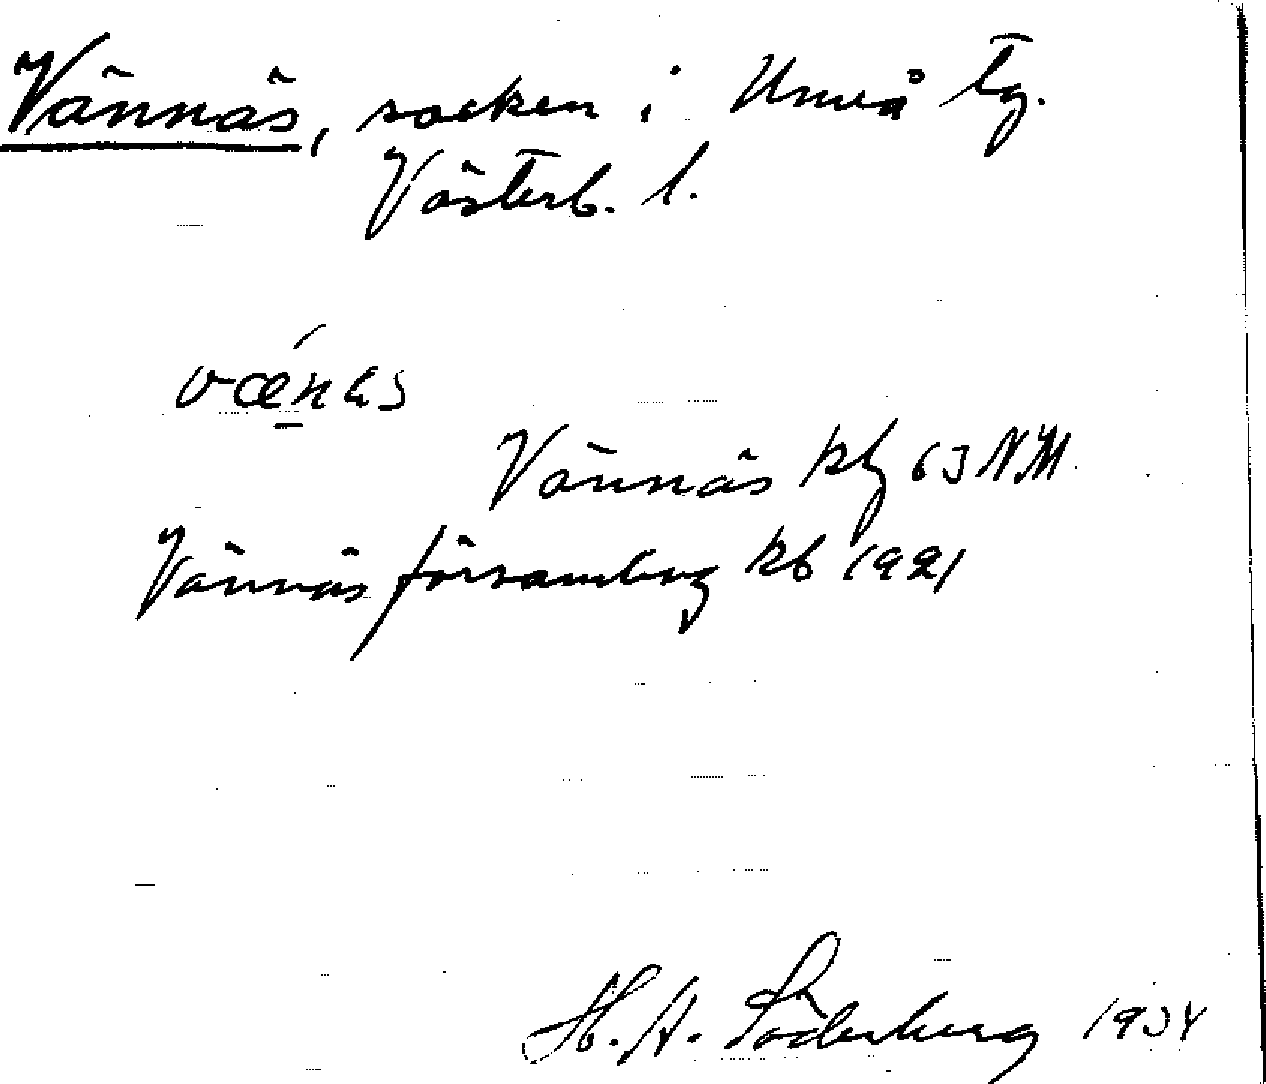 Vännäs, socken i Umeå tg.
Västerb. l.
væ´n̲as
Vännäs kbg 63 NM
Vännäs församling kb 1921
H. A. Söderberg 1934